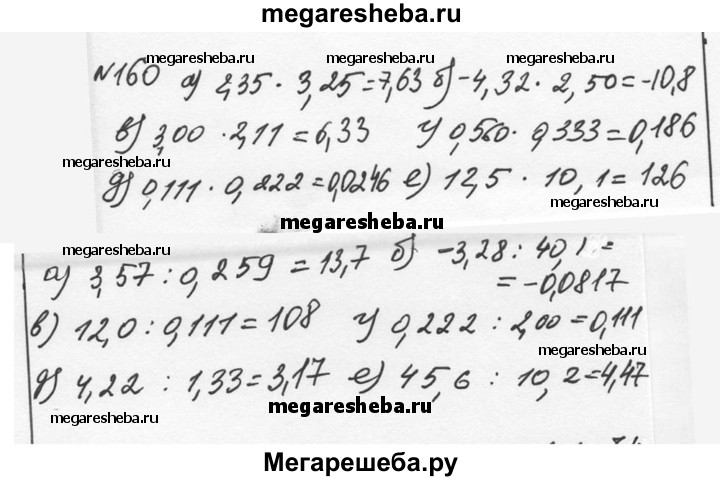 megaresheba.ru
megaresheba.ru megaresheba.ru megaresheba.ru
№160 а) 2,35 · 3,25 = 7,63 б) -4,32 · 2,50 = -10,8
в) 3,00 · 2,11 = 6,33 г) 0,560 · 0,333 = 0,186
megaresheba.ru
д) 0,111 · 0,222 = 0,0246 е) 12,5 · 10,1 = 126
megaresheba.ru megaresheba.ru
megaresheba.ru
а) 3,57 : 0,259 = 13,7 б) -3,28 : 40,1 =
= -0,0817
в) 12,0 : 0,111 = 108 г) 0,222 : 2,00 = 0,111
megaresheba.ru
д) 4,22 : 1,33 = 3,17 е) 45,6 : 10,2 = 4,47
megaresheba.ru megaresheba.ru
megaresheba.ru
Мегарешеба.ру